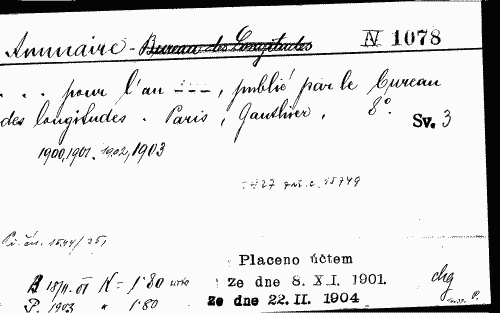 Annuaire - Bureau des Longitudes N 1078
. . . pour l'an - - -, publié par le bureau
des longitudes. Paris, Gauthier, 8°. Sv. 3
1900, 1901, 1902, 1903
Placeno účtem
18/II. 01 K = 1·80 ze dne 8. XI. 1901. chg
P. 1903 " 1·80 ze dne 22. II. 1904